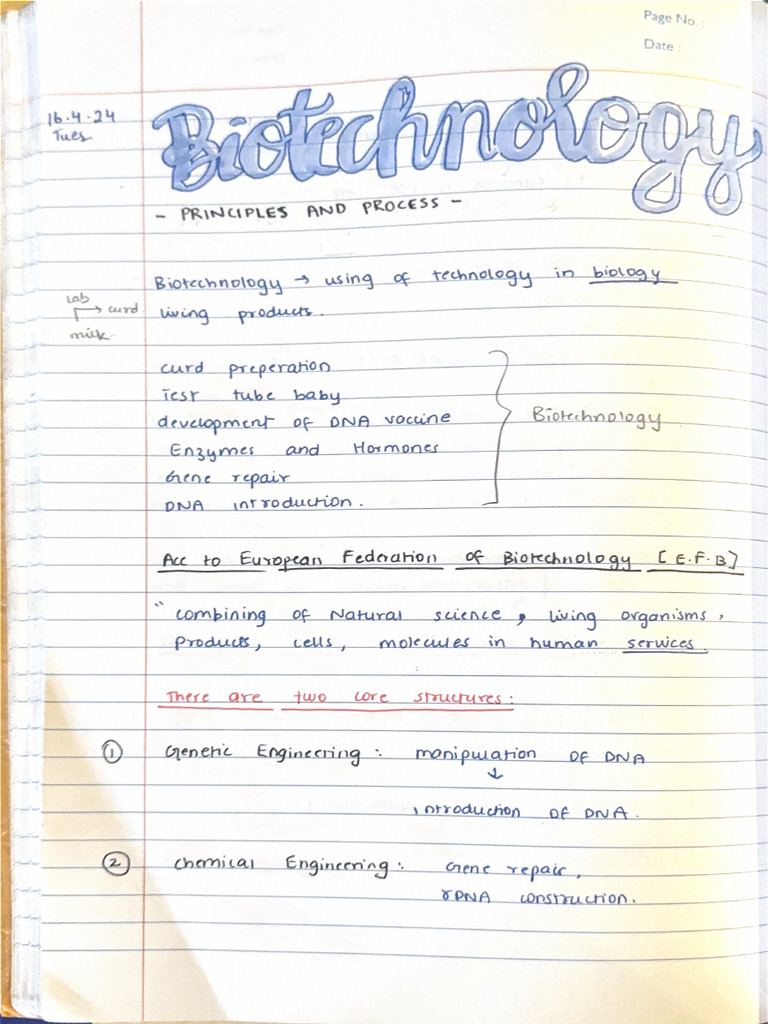 Page No. :
Date :
16.4.24
Tues
Biotechnology
- PRINCIPLES AND PROCESS -
Biotechnology → using of technology in biology
Lab
→ curd
milk
living products.
curd preperation
Test tube baby
development of DNA voccine
Enzymes and Hormones
Gene repair
DNA introduction.
Biotechnology
Acc to European Federation of Biotechnology [E.F.B]
" combining of Natural science, living organisms,
Products, cells, molecules in human services.
There are two core structures:
① Genetic Engineering: manipulation OF DNA
↓
introduction OF DNA.
② chemical Engineering: Gene repair,
rDNA construction.